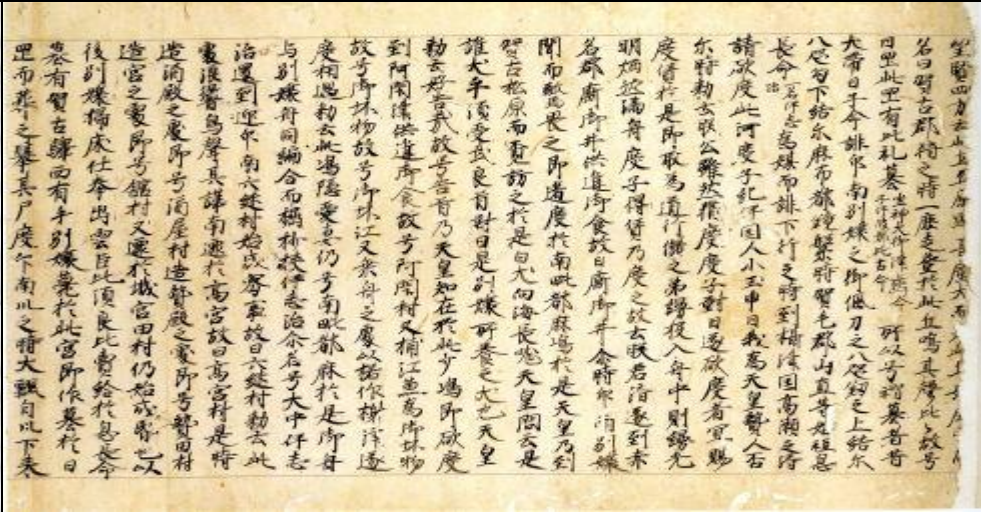 望覧四方云此土丘原野甚廣大而
名曰賀古郡狩之時一鹿走登於此丘鳴其聲比々故号
日岡此岡有比礼墓 坐神大御津歯命子伊波都比古命 所以号褶墓者昔
大帯日子命誂印南別嬢之御佩刀之八咫釼之上結尓
八咫勾下結尓麻布都鏡繫時賀毛郡山直等始祖息
長命 一名伊志治 為媒而誂下行之時到攝津国高瀬之済
請欲度此河度子紀伊国人小玉申曰我為天皇贄人否
尓時勅云朕公雖然猶度度子對曰遂欲度者宜賜
度賃於是即取為道行儲之弟縵投入舟中則縵光
明炳然満舟度子得賃乃度之故云朕君済遂到赤
名郡廝御井供進御食故曰廝御井尓時印南別嬢
聞而驚畏之即遁度於南毗都麻嶋於是天皇乃到
賀古松原而覓訪之於是白犬向海長吠天皇問云是
誰犬乎須受武良首對曰是別嬢所養之犬也天皇
勅云好告哉故号告首乃天皇知在於此少嶋即欲度
到阿閇津供進御食故号阿閇村又捕江魚為御坏物
故号御坏物故号御坏江又乗舟之處以楉作榭津遂
度相遇勅云此嶋隠愛妻仍号南毗都麻於是御舟
与別嬢舟同編合而伊志治尓名号大中伊志
治還到印南六継村始成密事故曰六継村勅云此
處浪響鳥聲甚譁南遷於高宮故曰高宮村是時
造酒殿之處即号酒屋村造贄殿之處即号贄田村
造宮之處即号舘村又遷於城宮田村仍始成昏也以
後別嬢掃床仕奉出雲臣比須良比賣給於息長命
墓有賀古驛西有年別嬢薨於此宮即作墓於日
岡而葬之擧其尸度印南川之時大飄自川下来